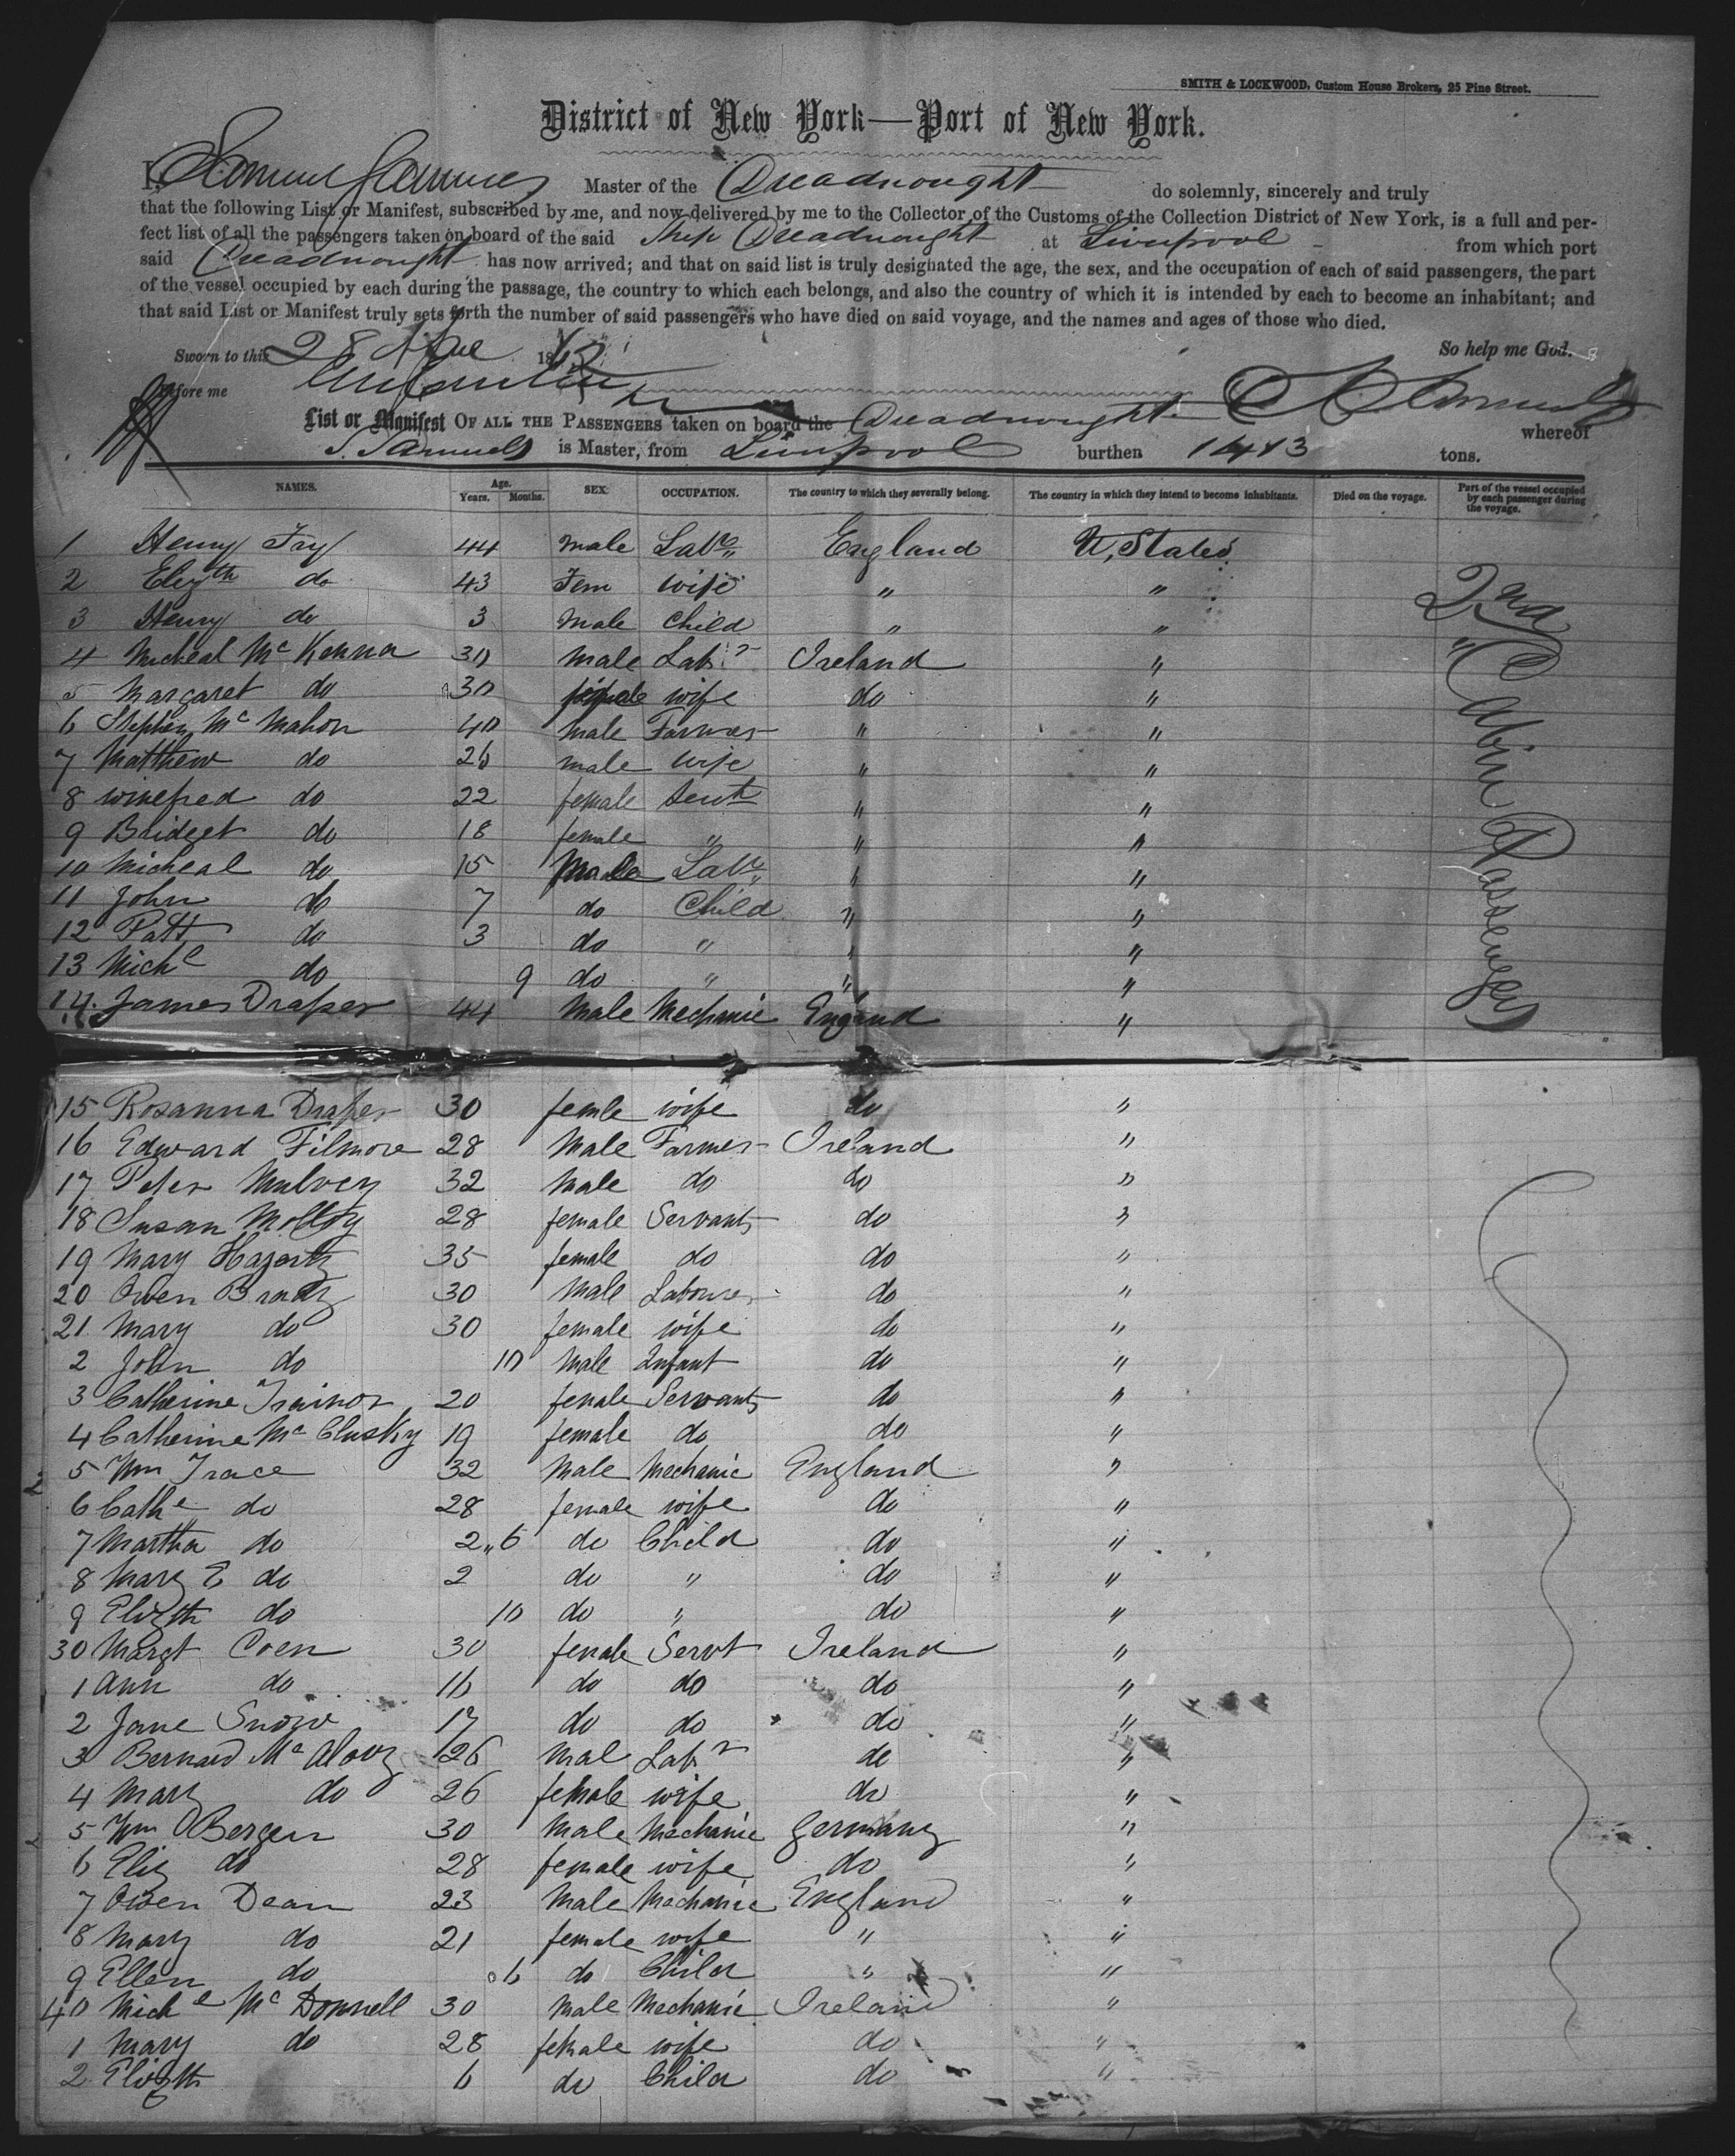 SMITH & LOCKWOOD, Custom House Brokers, 25 Pine Street.
District of New York—Port of New York.
I, Samuel Samuels Master of the Dreadnought do solemnly, sincerely and truly
that the following List or Manifest, subscribed by me, and now delivered by me to the Collector of the Customs of the Collection District of New York, is a full and per-
fect list of all the passengers taken on board of the said Ship Dreadnought at Liverpool from which port
said Dreadnought has now arrived; and that on said list is truly designated the age, the sex, and the occupation of each of said passengers, the part
of the vessel occupied by each during the passage, the country to which each belongs, and also the country of which it is intended by each to become an inhabitant; and
that said List or Manifest truly sets forth the number of said passengers who have died on said voyage, and the names and ages of those who died.
Sworn to this 28 186 So help me God.
Before me S Samuels
List or Manifest OF ALL THE PASSENGERS taken on board the Dreadnought whereof
S. Samuels is Master, from Liverpool burthen 1413 tons.
NAMES. Age. Years. Months. SEX. OCCUPATION. The country to which they severally belong. The country in which they intend to become inhabitants. Died on the voyage. Part of the vessel occupied by each passenger during the voyage.
1 Henry Fry 44 male Labr England U, States
2 Elizth do 43 Fem wife " "
3 Henry do 3 male Child " "
4 Micheal McKenna 30 male Labr Ireland "
5 Margaret do 30 female wife do "
6 Stephen McMahon 40 male Farmer " "
7 Matthew do 26 male wife " "
8 winefred do 22 female Servt " "
9 Bridget do 18 female " " "
10 Micheal do 15 Male Labr " "
11 John do 7 do Child " "
12 Patt do 3 do " " "
13 Michl do 9 do " " "
14 James Draper 44 Male Mechanic England "
2nd Cabin Passengers
15 Rosanna Draper 30 femle wife do "
16 Edward Filmore 28 Male Farmer Ireland "
17 Peter Mulvey 32 Male do do "
18 Susan Molloy 28 female Servant do "
19 Mary Hagerty 35 female do do "
20 Owen Brady 30 Male Labourer do "
21 Mary do 30 female wife do "
2 John do 10 Male Infant do "
3 Catherine Trainor 20 female Servant do "
4 Catherine McClusky 19 female do do "
5 Wm Trace 32 Male Mechanic England "
6 Cathe do 28 female wife do "
7 Martha do 2 " 6 do Child do "
8 Mary E do 2 do " do "
9 Elizth do 10 do " do "
30 Margt Coen 30 female Servt Ireland "
1 Ann do 16 do do do "
2 Jane Snow 17 do do do "
3 Bernard Mc 26 Mal Labr do "
4 Mary do 26 female wife do "
5 Wm Bergen 30 Male Mechanic Germany "
6 Eliz do 28 female wife do "
7 Owen Dean 23 Male Mechanic England "
8 Mary do 21 female wife " "
9 Ellen do 6 do Child " "
40 Michl McDonnell 30 Male Mechanic Ireland "
1 Mary do 28 female wife do "
2 Elizth 6 do Child do "